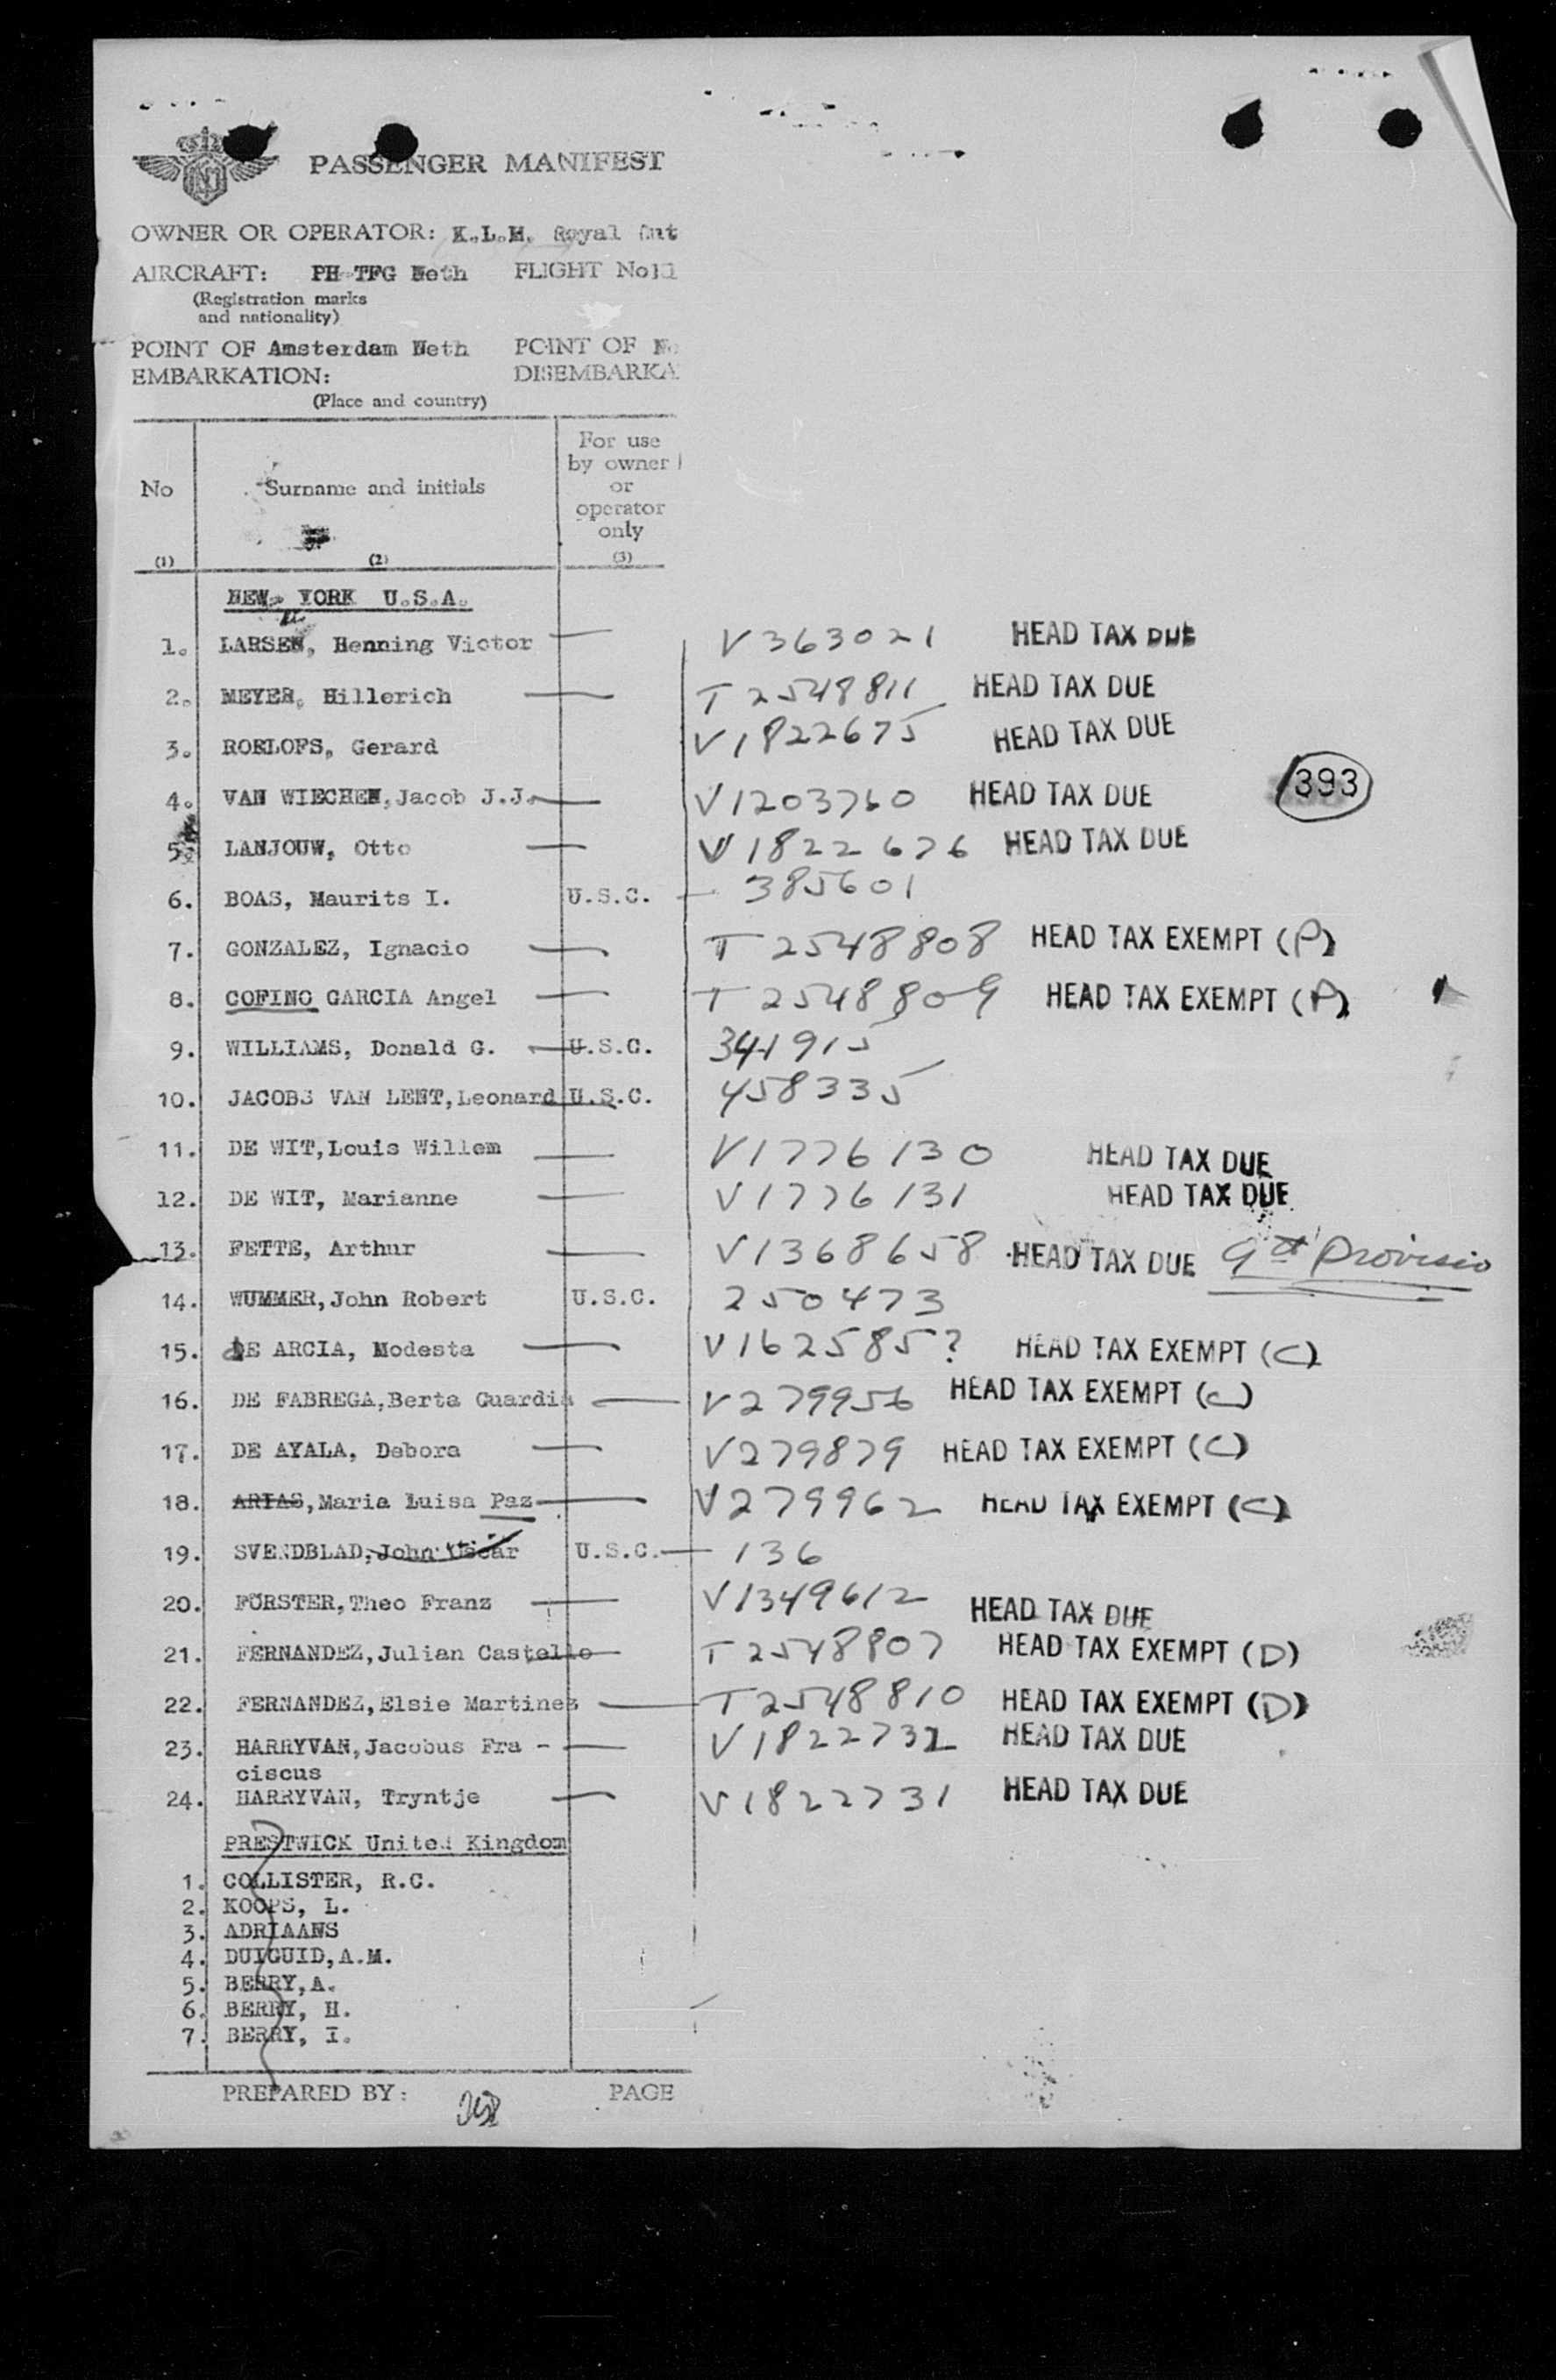 PASSENGER MANIFEST
OWNER OR OPERATOR: K.L.M. Royal Dut
AIRCRAFT: PH-TFG Neth FLIGHT No
(Registration marks
and nationality)
POINT OF Amsterdam Neth POINT OF
EMBARKATION: DISEMBARKA
(Place and country)
No Surname and initials For use
by owner
or
operator
only
(1) (2) (3)
NEW YORK U.S.A.
1. LARSEN, Henning Victor — V363021 HEAD TAX DUE
2. MEYER, Hillerich — T2548811 HEAD TAX DUE
3. ROELOFS, Gerard V1822675 HEAD TAX DUE
4. VAN WIECHEN, Jacob J.J. — V1203760 HEAD TAX DUE 393
5. LANJOUW, Otto — V1822676 HEAD TAX DUE
6. BOAS, Maurits I. U.S.C. — 385601
7. GONZALEZ, Ignacio — T2548808 HEAD TAX EXEMPT (P)
8. COFINO GARCIA Angel — T2548809 HEAD TAX EXEMPT (P)
9. WILLIAMS, Donald G. — U.S.C. 341915
10. JACOBS VAN LENT, Leonard U.S.C. 458335
11. DE WIT, Louis Willem — V1776130 HEAD TAX DUE
12. DE WIT, Marianne — V1776131 HEAD TAX DUE
13. FETTE, Arthur — V1368658 HEAD TAX DUE 9th Proviso
14. WUMMER, John Robert U.S.C. 250473
15. DE ARCIA, Modesta — V162585? HEAD TAX EXEMPT (C)
16. DE FABREGA, Berta Guardia — V279956 HEAD TAX EXEMPT (C)
17. DE AYALA, Debora — V279879 HEAD TAX EXEMPT (C)
18. ARIAS, Maria Luisa Paz — V279962 HEAD TAX EXEMPT (C)
19. SVENDBLAD, John Oscar U.S.C. — 136
20. FÖRSTER, Theo Franz — V1349612 HEAD TAX DUE
21. FERNANDEZ, Julian Castello — T2548807 HEAD TAX EXEMPT (D)
22. FERNANDEZ, Elsie Martinez — T2548810 HEAD TAX EXEMPT (D)
23. HARRYVAN, Jacobus Fra - — V1822732 HEAD TAX DUE
ciscus
24. HARRYVAN, Tryntje — V1822731 HEAD TAX DUE
PRESTWICK United Kingdom
1. COLLISTER, R.C.
2. KOOPS, L.
3. ADRIAANS
4. DUIGUID, A.M.
5. BERRY, A.
6. BERRY, H.
7. BERRY, I.
PREPARED BY: PAGE